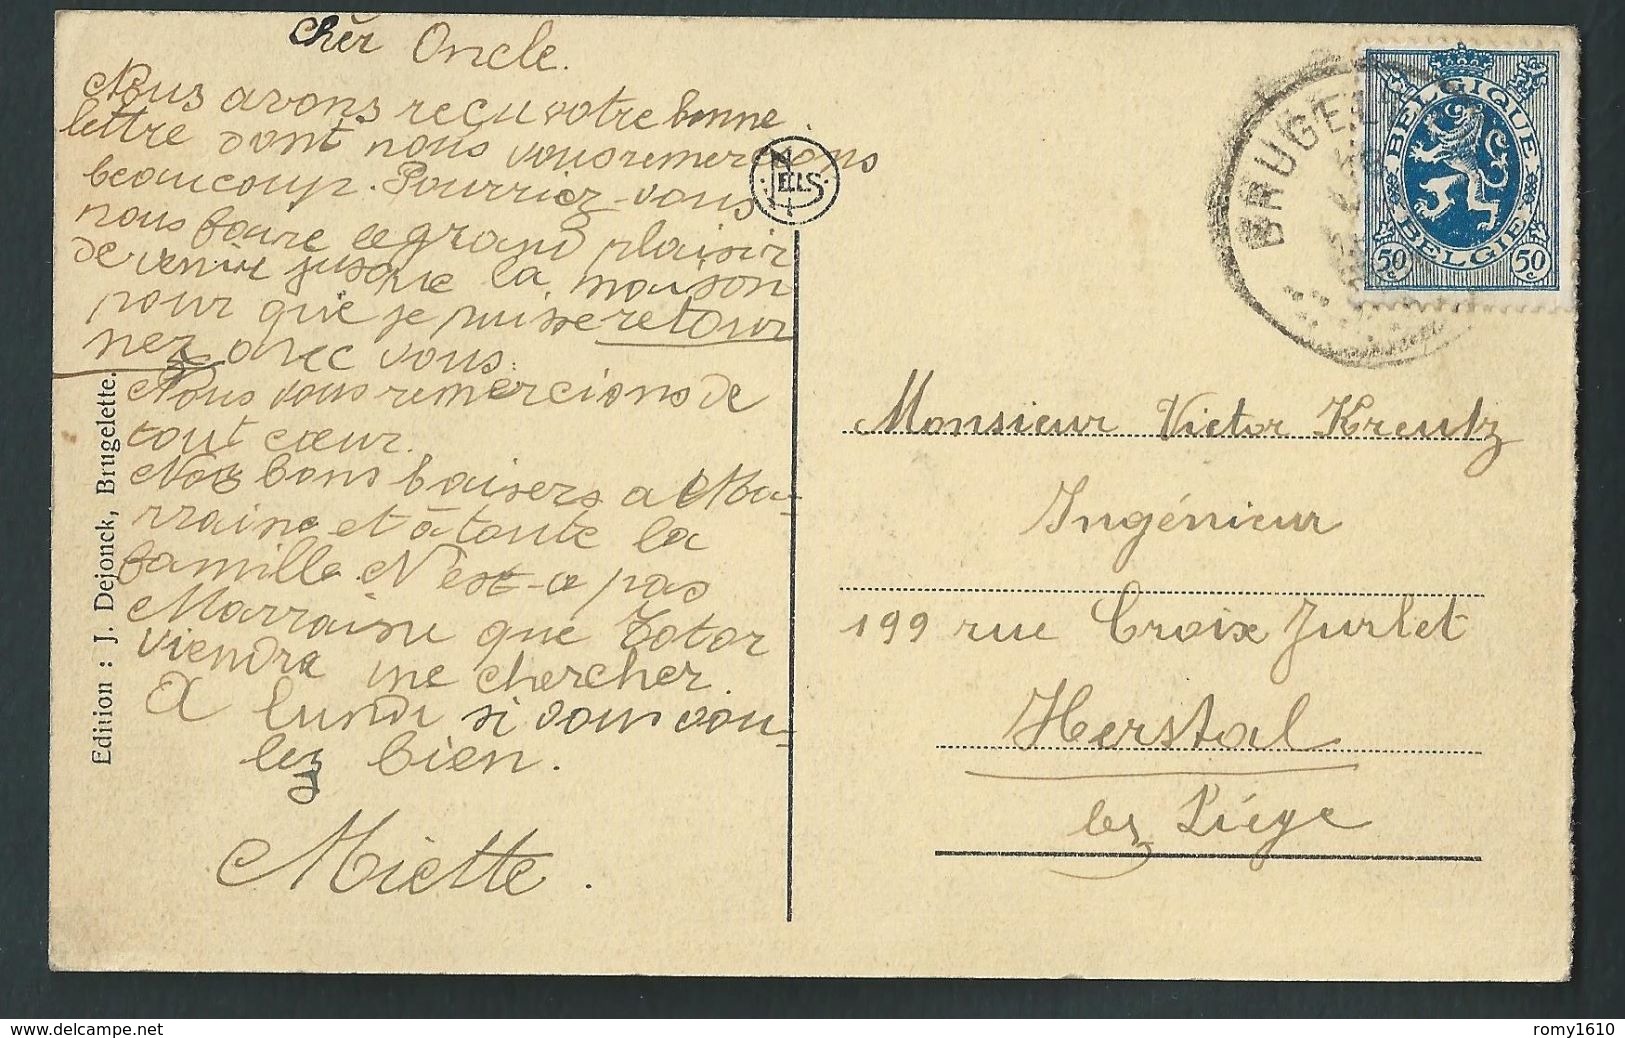 Cher Oncle.
Nous avons reçu votre bonne
lettre dont nous vous remercions
beaucoup. Pourriez-vous
nous faire ce grand plaisir
de venir jusque la maison
pour que je puisse retour
nez avec vous.
Nous vous remercions de
tout cœur.
Nos bons baisers a Ma-
rraine et à toute la
famille. N'est-ce pas
Marraine que Totor
viendra me chercher.
A lundi si vous vou-
lez bien.
Miette.
Edition : J. Dejonck, Brugelette.
NELS
BELGIQUE
BELGIE
50 c
50 c
Monsieur Victor Kreutz
Ingénieur
199 rue Croix Jurlet
Herstal
lez Liége
delcampe.net
romy1610